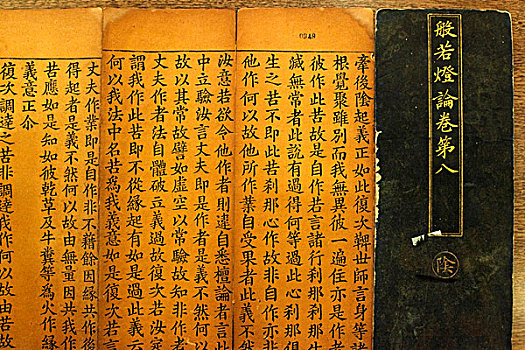 般若燈論卷第八
陰
後陰起義正如此復次鞞世師言身等諸
根覺聚雖別而我無異彼一遍住亦是作者
彼作此苦故是自作若言諸行刹那刹那生
滅無常者此說有過得何等過此心刹那但
生之苦不即此苦刹那心作故非自作亦非
他作何以故他所作業自受果者此義不然
汝意若欲令他作者則違自悉檀論者言此
中立驗汝言丈夫即是作者是義不然何以
故以其常故譬如虛空以常驗故知非作者
丈夫作者法自體破立義過故復次若汝定
謂我作此苦即不從緣起有如是過此義云
何以我法中名苦為我義意如是復次若言
丈夫作業即是自作非不藉餘因緣共作後
得起者是義不然何以故由無量因共我作
苦應如是知如彼乾草及牛糞等為火作緣
義意正尒
復次調達之苦非調達我作何以故由苦故